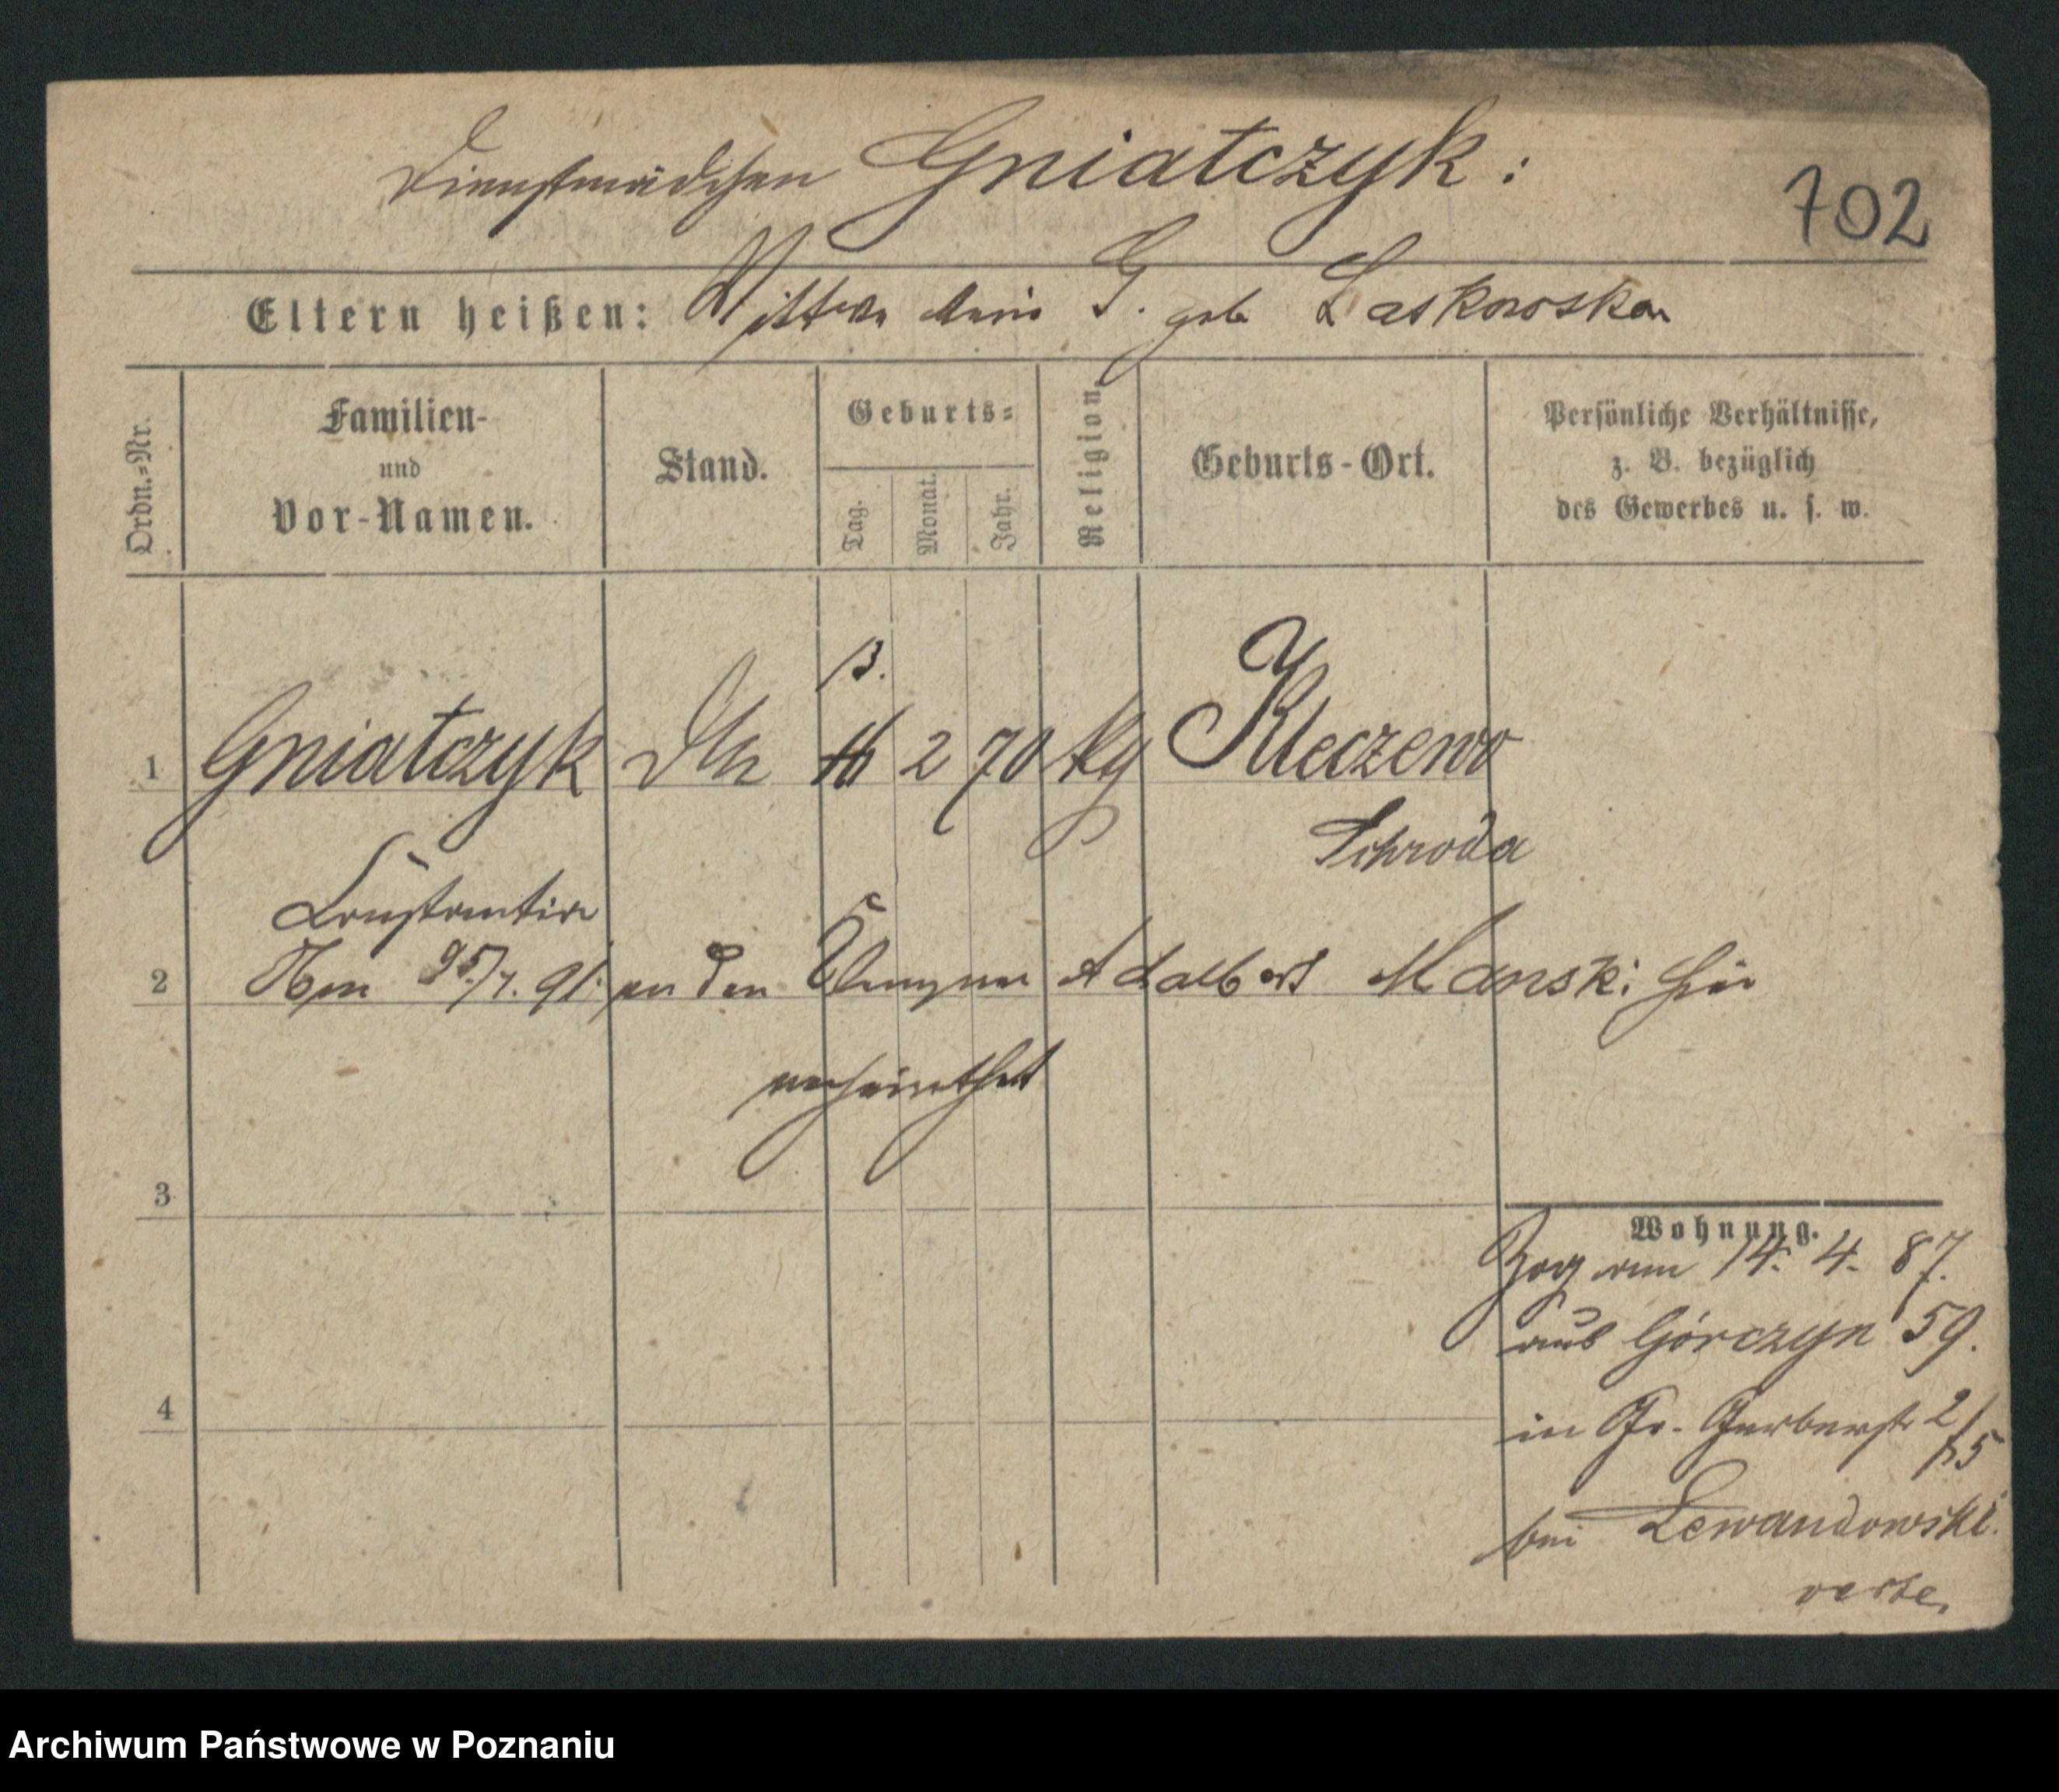 Dienstmädchen Gniatczyk:
702
Eltern heißen: Wittwe Marie G. geb Laskowska
Ordn.=Nr.
Familien-
und
Vor-Namen.
Stand.
Geburts=
Tag.
Monat.
Jahr.
Religion.
Geburts-Ort.
Persönliche Verhältnisse,
z. B. bezüglich
des Gewerbes u. s. w.
13.
1 Gniatczyk 2 70 kg Kleczewo
Schroda
Constantia
2 91. an den Adalbert Manski hier
verheirathet
3
Wohnung.
Zog am 14. 4. 87.
aus Górczyn 59.
4
in Gr. Gerberstr 2/
15
bei Lewandowski.
verte.
Archiwum Państwowe w Poznaniu